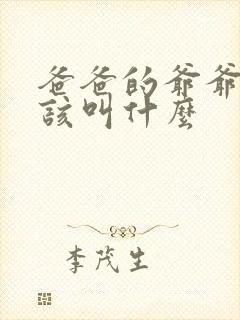 爸爸的爺爺
該叫什麼
李茂生